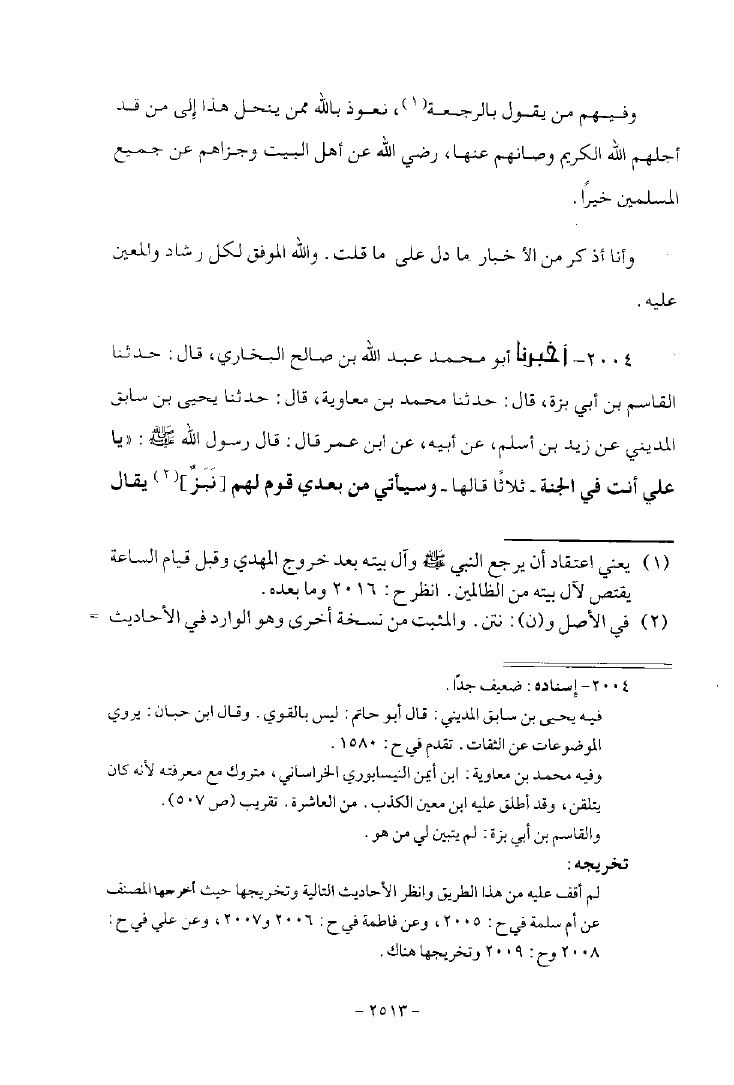 وفيهم من يقول بالرجعة(١)، نعوذ بالله ممن ينحل هذا إلى من قد
أجلهم الله الكريم وصانهم عنها، رضي الله عن أهل البيت وجزاهم عن جميع
المسلمين خيراً.
وأنا أذكر من الأخبار ما دل على ما قلت. والله الموفق لكل رشاد والمعين
عليه.
٢٠٠٤- أخبرنا أبو محمد عبد الله بن صالح البخاري، قال: حدثنا
القاسم بن أبي بزة، قال: حدثنا محمد بن معاوية، قال: حدثنا يحيى بن سابق
المديني عن زيد بن أسلم، عن أبيه، عن ابن عمر قال: قال رسول الله ﷺ: «يا
علي أنت في الجنة ـ ثلاثًا قالها ـ وسيأتي من بعدي قوم لهم [نَبَزٌ](٢) يقال
(١) يعني اعتقاد أن يرجع النبي ﷺ وآل بيته بعد خروج المهدي وقبل قيام الساعة
يقتص لآل بيته من الظالمين. انظر ح: ٢٠١٦ وما بعده.
(٢) في الأصل و(ن): نتن. والمثبت من نسخة أخرى وهو الوارد في الأحاديث =
٢٠٠٤- إسناده: ضعيف جدًا.
فيه يحيى بن سابق المديني: قال أبو حاتم: ليس بالقوي. وقال ابن حبان: يروي
الموضوعات عن الثقات. تقدم في ح: ١٥٨٠.
وفيه محمد بن معاوية: ابن أيمن النيسابوري الخراساني، متروك مع معرفته لأنه كان
يتلقن، وقد أطلق عليه ابن معين الكذب. من العاشرة. تقريب (ص ٥٠٧).
والقاسم بن أبي بزة: لم يتبين لي من هو.
تخريجه:
لم أقف عليه من هذا الطريق وانظر الأحاديث التالية وتخريجها حيث أخرجها المصنف
عن أم سلمة في ح: ٢٠٠٥، وعن فاطمة في ح: ٢٠٠٦ و٢٠٠٧، وعن علي في ح:
٢٠٠٨ وح: ٢٠٠٩ وتخريجها هناك.
- ٢٥١٣ -